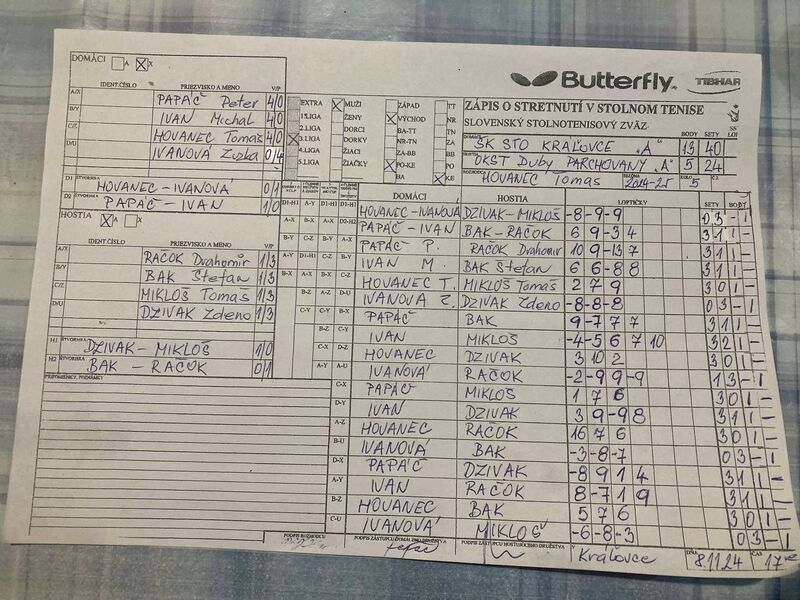 DOMÁCI A X
Butterfly
TIBHAR
IDENT.ČÍSLO PRIEZVISKO A MENO V/P
A/X PAPÁČ Peter 4/0
B/Y IVAN Michal 4/0
C/Z HOVANEC Tomáš 4/0
D/U IVANOVÁ Zuzka 0/4
D1 ŠTVORHRA HOVANEC - IVANOVÁ 0/1
D2 ŠTVORHRA PAPÁČ - IVAN 1/0
HOSTIA A X
IDENT.ČÍSLO PRIEZVISKO A MENO V/P
A/X RAČOK Drahomír 1/3
B/Y BAK Štefan 1/3
C/Z MIKLOŠ Tomáš 1/3
D/U DZIVAK Zdeno 1/3
H1 ŠTVORHRA DZIVAK - MIKLOŠ 1/0
H2 ŠTVORHRA BAK - RAČOK 0/1
PRIPOMIENKY, POZNÁMKY
EXTRA MUŽI ZÁPAD TT
1.LIGA ŽENY VÝCHOD NR
2.LIGA DORCI BA-TT TN
3.LIGA DORKY NR-TN ZA
4.LIGA ŽIACI ZA-BB
5.LIGA ŽIAČKY PO-KE
BA KE
ZÁPIS O STRETNUTÍ V STOLNOM TENISE
SLOVENSKÝ STOLNOTENISOVÝ ZVÄZ
DOMÁCI ŠK STO KRÁĽOVCE "A" BODY 13 SETY 40
HOSTIA OKST Duby PARCHOVANY "A" 5 24
ROZHODCA HOVANEC Tomáš SEZÓNA 2024-25 KOLO 5 Č.Z.
DOMÁCI HOSTIA LOPTIČKY SETY BODY
HOVANEC-IVANOVÁ DZIVAK-MIKLOŠ -8 -9 -9 0 3 - 1
PAPÁČ-IVAN BAK-RAČOK 6 9 -3 4 3 1 1 -
PAPÁČ P. RAČOK Drahomír 10 9 -13 7 3 1 1 -
IVAN M. BAK Štefan 6 6 -8 8 3 1 1 -
HOVANEC T. MIKLOŠ Tomáš 2 7 9 3 0 1 -
IVANOVÁ Z. DZIVAK Zdeno -8 -8 -8 0 3 - 1
PAPÁČ BAK 9 -7 7 7 3 1 1 -
IVAN MIKLOŠ -4 -5 6 7 10 3 2 1 -
HOVANEC DZIVAK 3 10 2 3 0 1 -
IVANOVÁ RAČOK -2 -9 9 -9 1 3 - 1
PAPÁČ MIKLOŠ 1 7 6 3 0 1 -
IVAN DZIVAK 3 9 -9 8 3 1 1 -
HOVANEC RAČOK 16 7 6 3 0 1 -
IVANOVÁ BAK -3 -8 -7 0 3 - 1
PAPÁČ DZIVAK -8 9 1 4 3 1 1 -
IVAN RAČOK 8 -7 1 9 3 1 1 -
HOVANEC BAK 5 7 6 3 0 1 -
IVANOVÁ MIKLOŠ -6 -8 -3 0 3 - 1
PODPIS ROZHODCU
PODPIS ZÁSTUPCU DOMÁCEHO DRUŽSTVA
PODPIS ZÁSTUPCU HOSŤUJÚCEHO DRUŽSTVA
V Kráľovce DŇA 8.11.24 ČAS 17